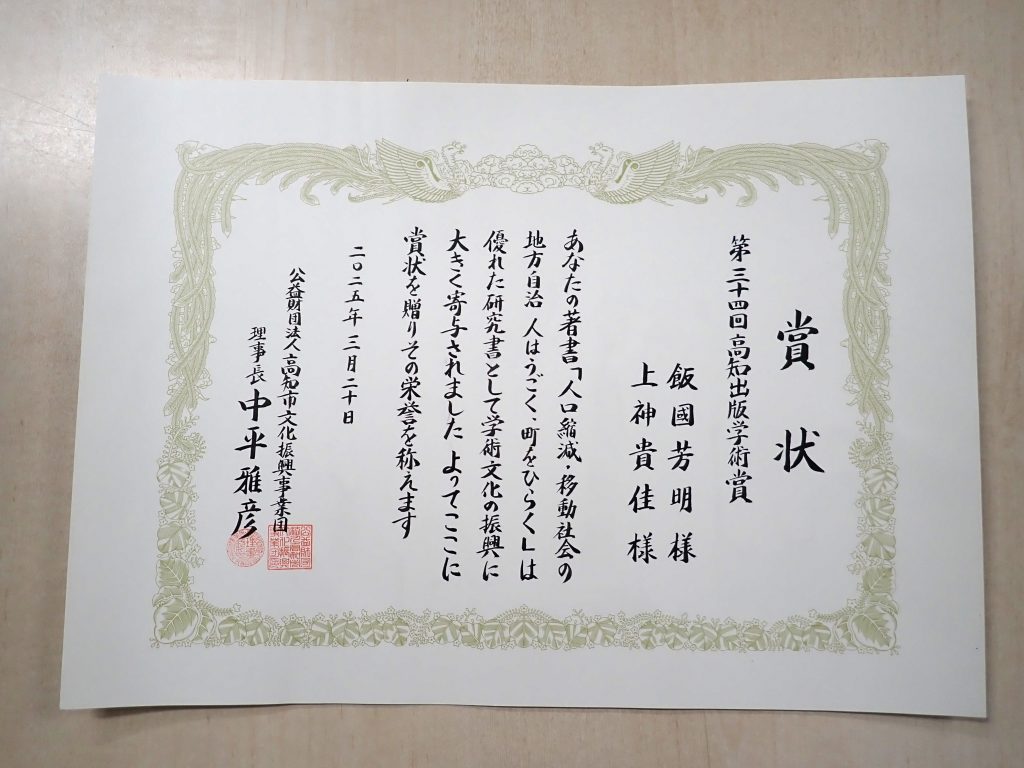 賞状
第三十四回高知出版学術賞
飯國芳明様
上神貴佳様
あなたの著書「人口縮減・移動社会の
地方自治 人はうごく、町をひらく」は
優れた研究書として学術文化の振興に
大きく寄与されました よってここに
賞状を贈りその栄誉を称えます
二〇二五年三月二十日
公益財団法人高知市文化振興事業団
理事長 中平雅彦